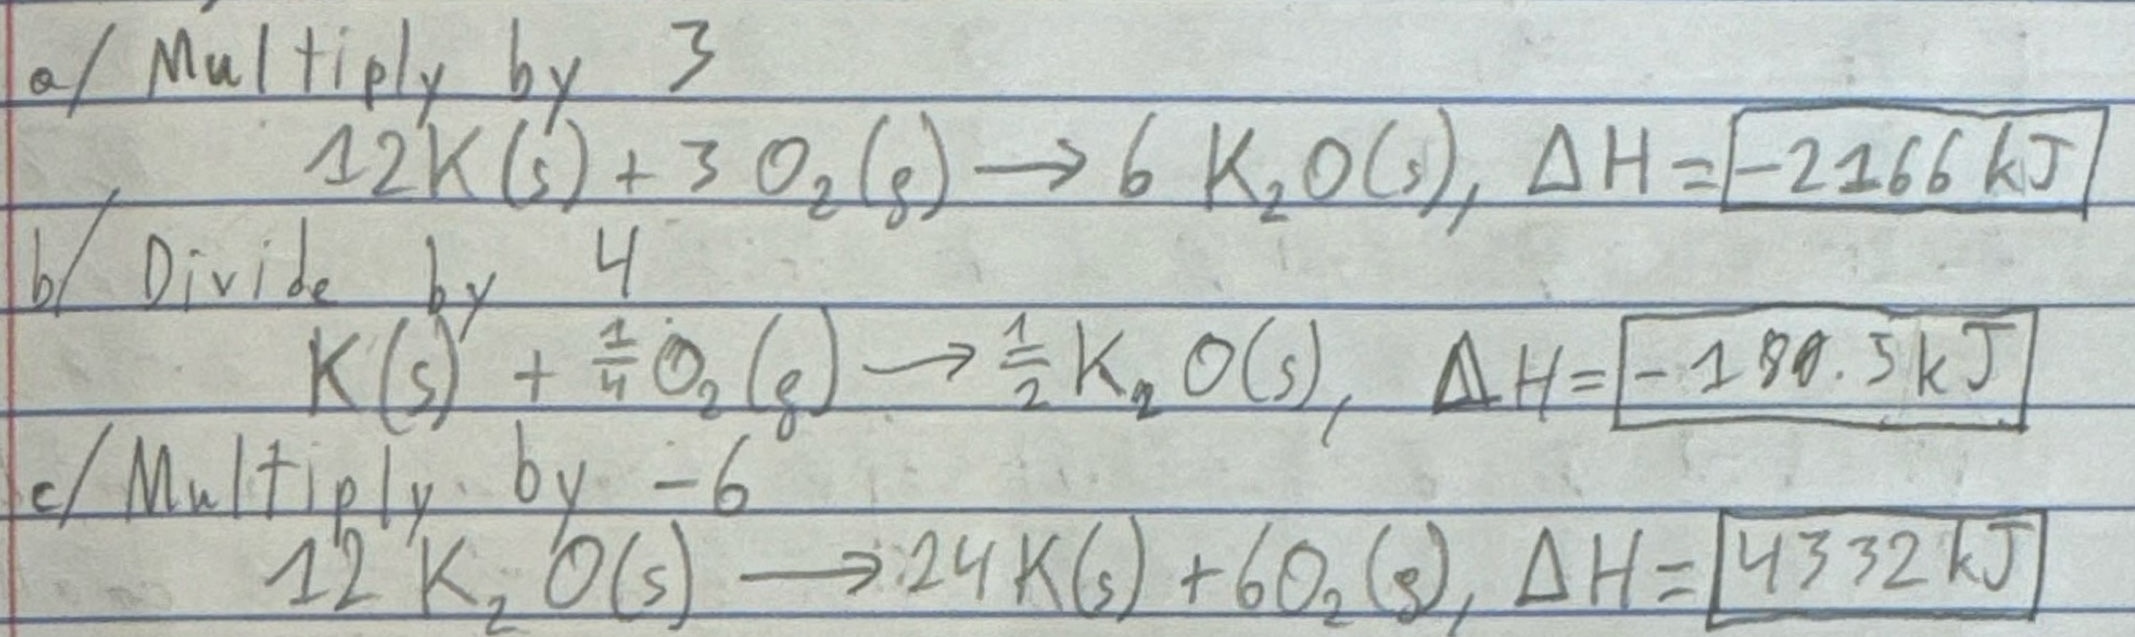 a/ Multiply by 3
12K(s) + 3 O₂(g) → 6 K₂O(s), ΔH = -2166 kJ
b/ Divide by 4
K(s) + 1/4 O₂(g) → 1/2 K₂O(s), ΔH = -180.5 kJ
c/ Multiply by -6
12 K₂O(s) → 24K(s) + 6O₂(g), ΔH = 4332 kJ